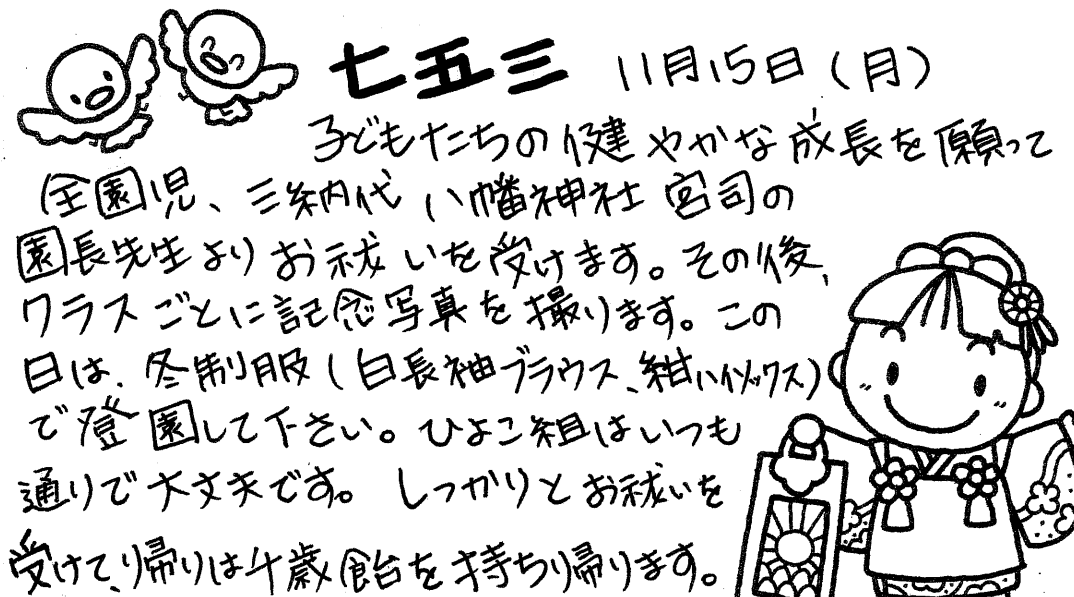 七五三 11月15日(月)
子どもたちの健やかな成長を願って
全園児、三納代八幡神社宮司の
園長先生よりお祓いを受けます。その後、
クラスごとに記念写真を撮ります。この
日は、冬制服(白長袖ブラウス、紺ハイソックス)
で登園して下さい。ひよこ組はいつも
通りで大丈夫です。しっかりとお祓いを
受けて、帰りは千歳飴を持ち帰ります。